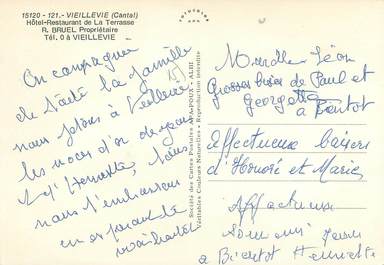 15120 - 121. - VIEILLEVIE (Cantal)
Hôtel-Restaurant de La Terrasse
R. BRUEL Propriétaire
Tél. 0 à VIEILLEVIE
En compagnie
de toute la famille
nous fêtons à Vieillevie
les noces d'or de
et d'Henriette, nous
nous t'embrassons
en espérant te
Société des Cartes Postales APA-POUX - ALBI
Véritables Couleurs Naturelles - Reproduction interdite
Léon
Grosses bises de Paul et
Georgette
à Bientôt
Affectueux baisers
d'Honoré et Marie
Affectueux
à Bientôt Henriette